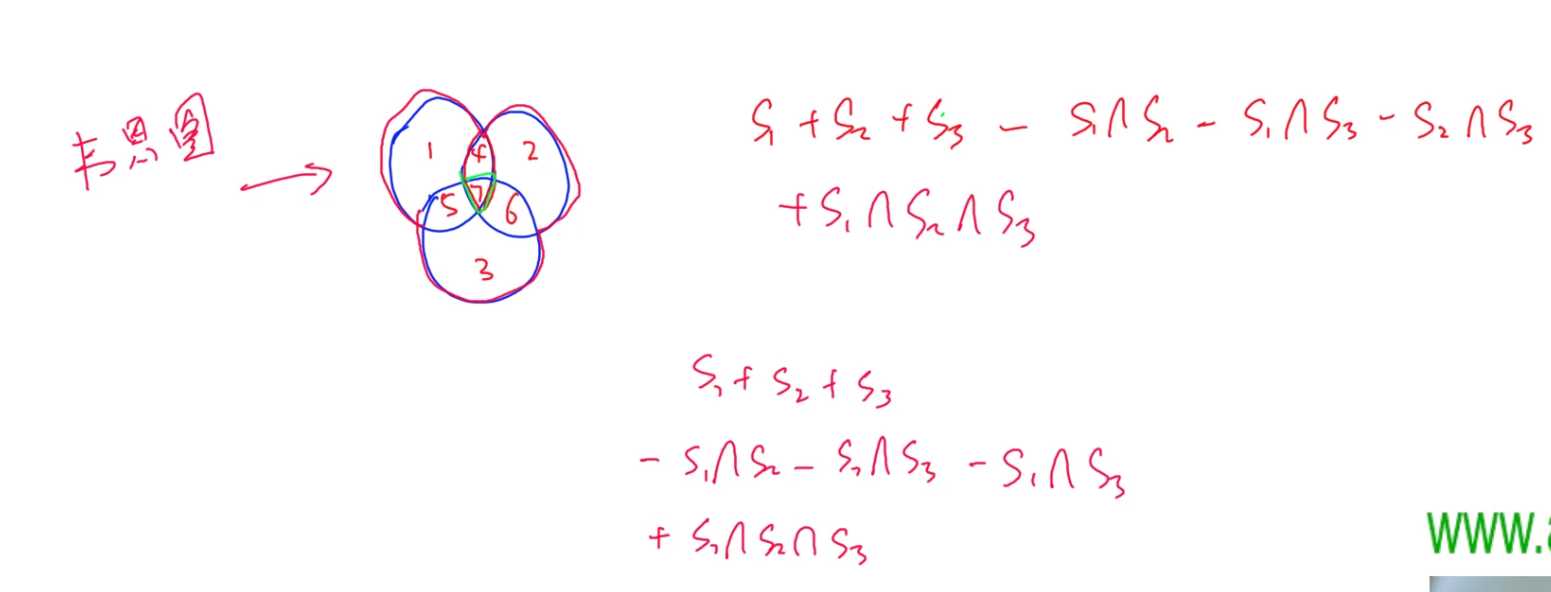 韦恩图
1 4 2
5 7 6
3
S₁ + S₂ + S₃ - S₁∩S₂ - S₁∩S₃ - S₂∩S₃
+ S₁∩S₂∩S₃
S₁ + S₂ + S₃
- S₁∩S₂ - S₂∩S₃ - S₁∩S₃
+ S₁∩S₂∩S₃
www.a